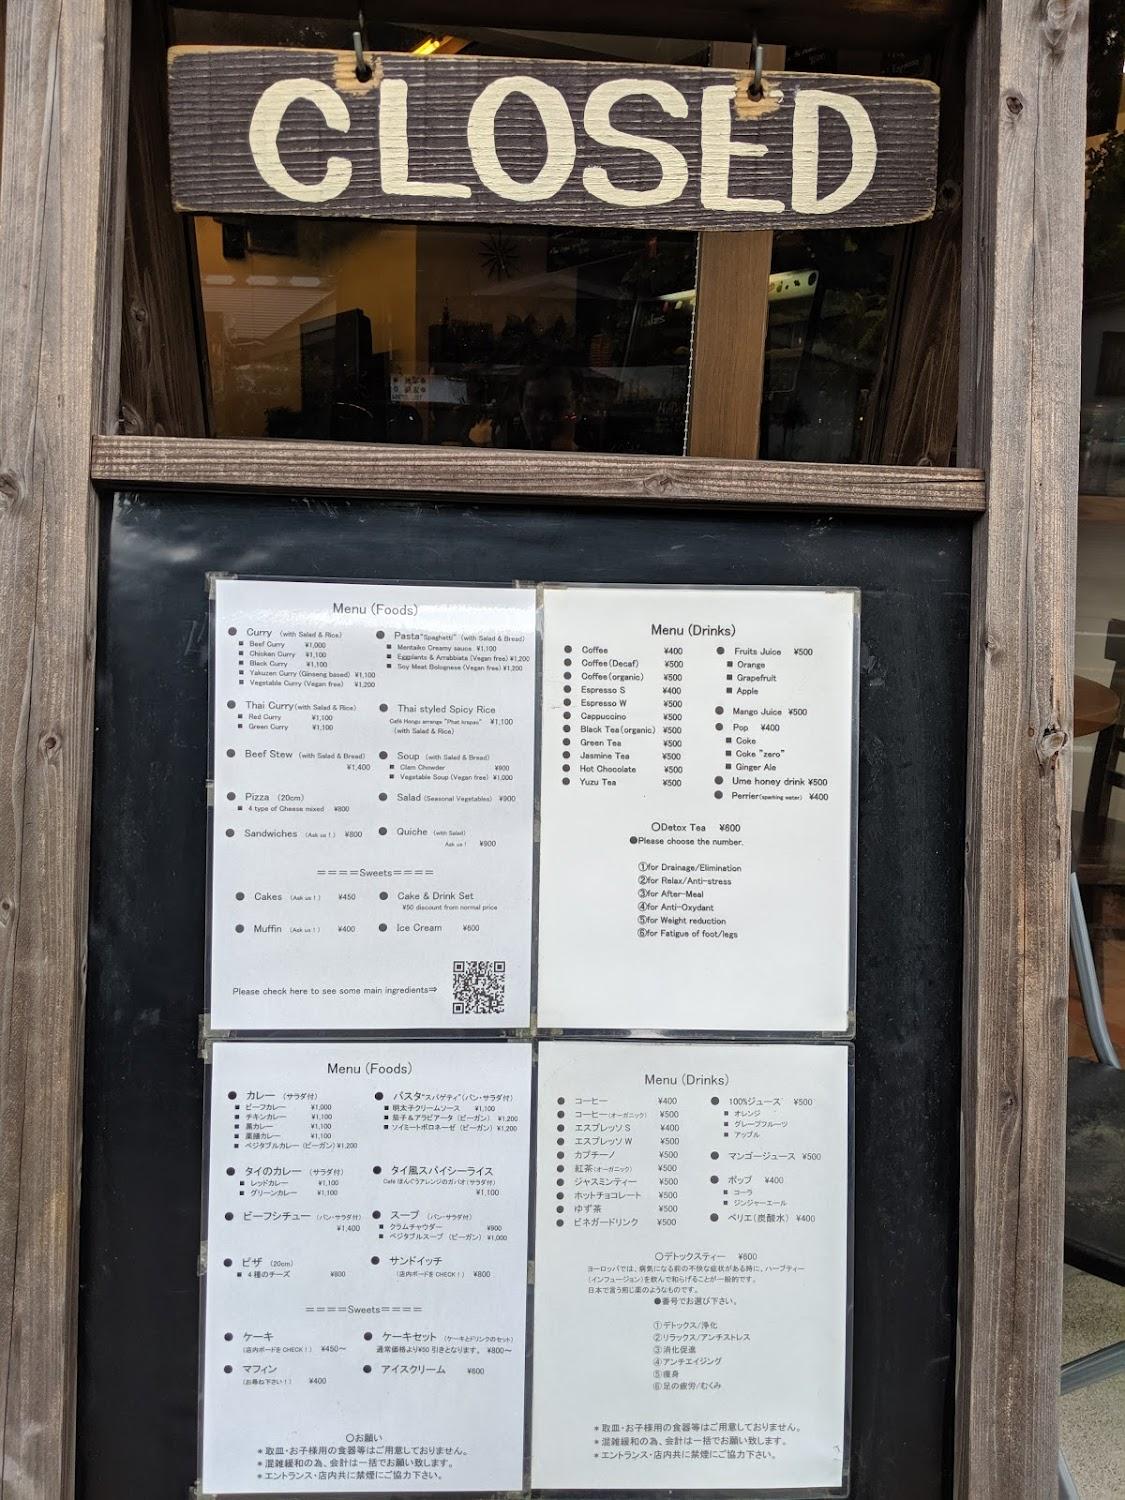 CLOSED
Menu (Foods)
● Curry (with Salad & Rice)
■ Beef Curry ¥1,000
■ Chicken Curry ¥1,100
■ Black Curry ¥1,100
■ Yakuzen Curry (Ginseng based) ¥1,100
■ Vegetable Curry (Vegan free) ¥1,200
● Pasta"Spaghetti" (with Salad & Bread)
■ Mentaiko Creamy sauce ¥1,100
■ Eggplants & Arrabbiata (Vegan free) ¥1,200
■ Soy Meat Bolognese (Vegan free) ¥1,200
● Thai Curry(with Salad & Rice)
■ Red Curry ¥1,100
■ Green Curry ¥1,100
● Thai styled Spicy Rice
Café Hongu arrange "Phat krapao" ¥1,100
(with Salad & Rice)
● Beef Stew (with Salad & Bread)
¥1,400
● Soup (with Salad & Bread)
■ Clam Chowder ¥900
■ Vegetable Soup (Vegan free) ¥1,000
● Pizza (20cm)
■ 4 type of Cheese mixed ¥800
● Salad (Seasonal Vegetables) ¥900
● Sandwiches (Ask us!) ¥800
● Quiche (with Salad)
Ask us! ¥900
====Sweets====
● Cakes (Ask us!) ¥450
● Cake & Drink Set
¥50 discount from normal price
● Muffin (Ask us!) ¥400
● Ice Cream ¥600
Please check here to see some main ingredients⇒
Menu (Drinks)
● Coffee ¥400
● Coffee(Decaf) ¥500
● Coffee(organic) ¥500
● Espresso S ¥400
● Espresso W ¥500
● Cappuccino ¥500
● Black Tea(organic) ¥500
● Green Tea ¥500
● Jasmine Tea ¥500
● Hot Chocolate ¥500
● Yuzu Tea ¥500
● Fruits Juice ¥500
■ Orange
■ Grapefruit
■ Apple
● Mango Juice ¥500
● Pop ¥400
■ Coke
■ Coke "zero"
■ Ginger Ale
● Ume honey drink ¥500
● Perrier(sparking water) ¥400
○Detox Tea ¥600
●Please choose the number.
①for Drainage/Elimination
②for Relax/Anti-stress
③for After-Meal
④for Anti-Oxydant
⑤for Weight reduction
⑥for Fatigue of foot/legs
Menu (Foods)
● カレー (サラダ付)
■ ビーフカレー ¥1,000
■ チキンカレー ¥1,100
■ 黒カレー ¥1,100
■ 薬膳カレー ¥1,100
■ ベジタブルカレー (ビーガン) ¥1,200
● パスタ"スパゲティ"(パン・サラダ付)
■ 明太子クリームソース ¥1,100
■ 茄子&アラビアータ (ビーガン) ¥1,200
■ ソイミートボロネーゼ (ビーガン) ¥1,200
● タイのカレー (サラダ付)
■ レッドカレー ¥1,100
■ グリーンカレー ¥1,100
● タイ風スパイシーライス
Café ほんぐうアレンジのガパオ(サラダ付)
¥1,100
● ビーフシチュー (パン・サラダ付)
¥1,400
● スープ (パン・サラダ付)
■ クラムチャウダー ¥900
■ ベジタブルスープ (ビーガン) ¥1,000
● ピザ (20cm)
■ 4種のチーズ ¥800
● サンドイッチ
(店内ボードを CHECK!) ¥800
====Sweets====
● ケーキ
(店内ボードを CHECK!) ¥450～
● ケーキセット (ケーキとドリンクのセット)
通常価格より¥50 引きとなります。 ¥800～
● マフィン
(お尋ね下さい!) ¥400
● アイスクリーム ¥600
○お願い
＊取皿・お子様用の食器等はご用意しておりません。
＊混雑緩和の為、会計は一括でお願い致します。
＊エントランス・店内共に禁煙にご協力下さい。
Menu (Drinks)
● コーヒー ¥400
● コーヒー(オーガニック) ¥500
● エスプレッソ S ¥400
● エスプレッソ W ¥500
● カプチーノ ¥500
● 紅茶(オーガニック) ¥500
● ジャスミンティー ¥500
● ホットチョコレート ¥500
● ゆず茶 ¥500
● ビネガードリンク ¥500
● 100%ジュース ¥500
■ オレンジ
■ グレープフルーツ
■ アップル
● マンゴージュース ¥500
● ポップ ¥400
■ コーラ
■ ジンジャーエール
● ペリエ(炭酸水) ¥400
○デトックスティー ¥600
ヨーロッパでは、病気になる前の不快な症状がある時に、ハーブティー
(インフュージョン)を飲んで和らげることが一般的です。
日本で言う煎じ薬のようなものです。
●番号でお選び下さい。
①デトックス/浄化
②リラックス/アンチストレス
③消化促進
④アンチエイジング
⑤痩身
⑥足の疲労/むくみ
＊取皿・お子様用の食器等はご用意しておりません。
＊混雑緩和の為、会計は一括でお願い致します。
＊エントランス・店内共に禁煙にご協力下さい。